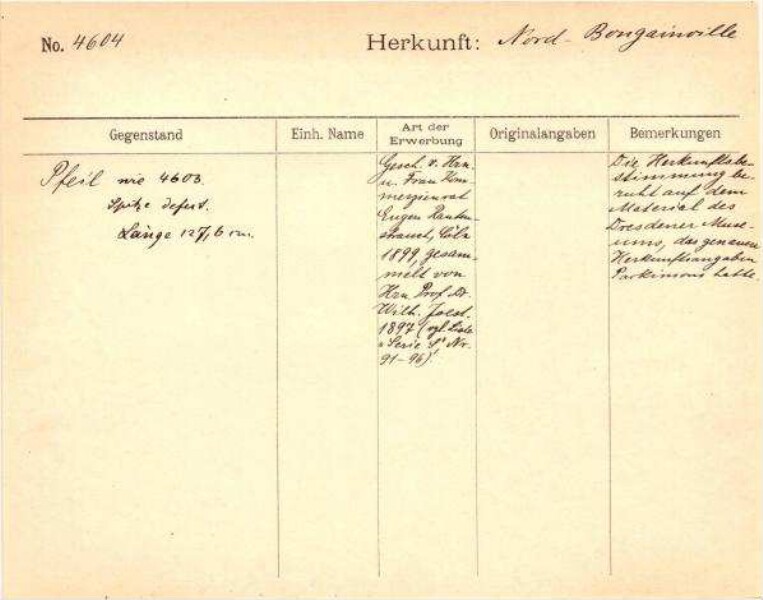 No. 4604
Herkunft: Nord-Bougainville
Gegenstand
Einh. Name
Art der
Erwerbung
Originalangaben
Bemerkungen
Pfeil wie 4603.
Spitze defect.
Länge 127,6 cm.
Gesch. v. Hrn.
u. Frau Kom-
merzienrat
Eugen Rauten-
strauch, Cöln
1899, gesam-
melt von
Hrn. Prof. Dr.
Wilh. Joest.
1897 (vgl. Liste
"Serie S" Nr.
91-96)!
Die Herkunftsbe-
stimmung be-
ruht auf dem
Material des
Dresdener Muse-
ums, das genauen
Herkunftsangaben
Parkinsons hatte.